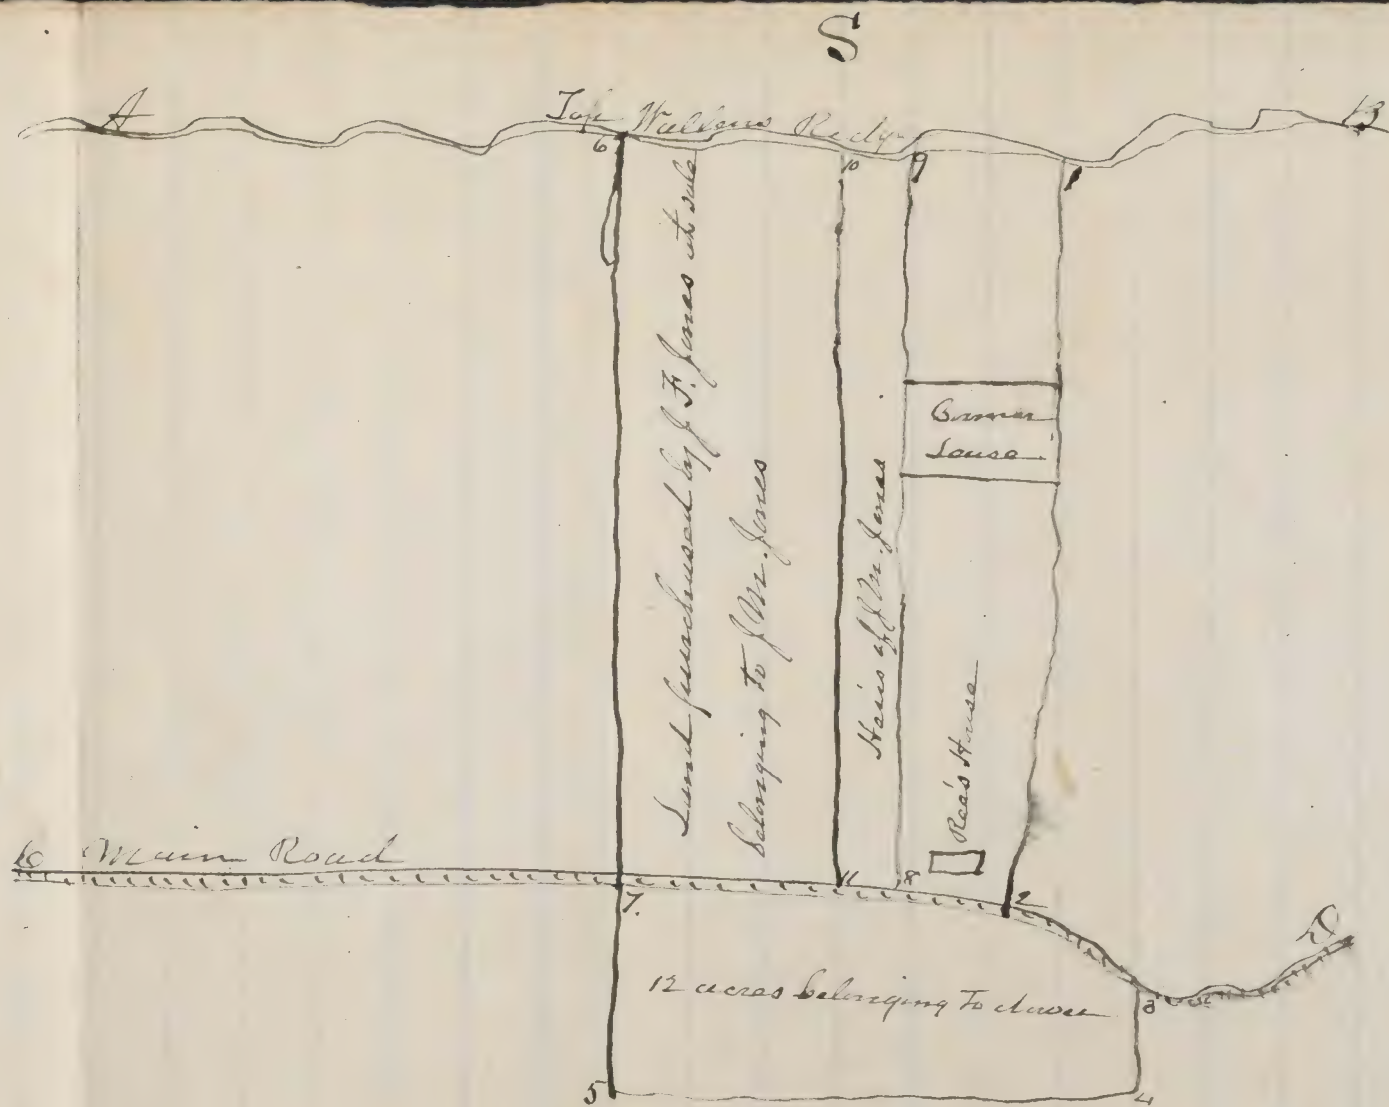 S
A
Top Wallens Ridge
B
6
10
9
1
Land purchased by J. F. Jones at sale
belonging to J. M. Jones
Heirs of J. M. Jones
Lease
Rea's House
Main Road
7.
11
8
2
D
12 acres belonging To dower
3
5
4